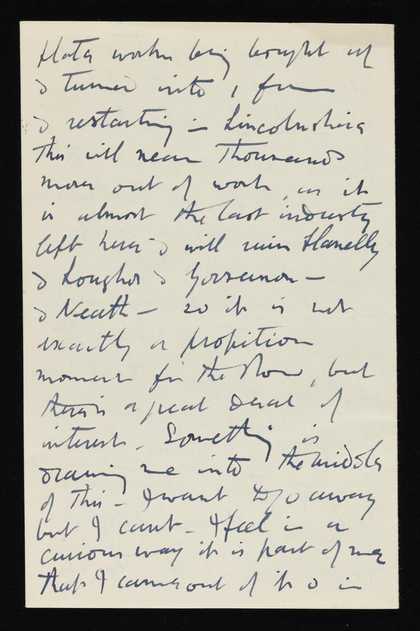 works being bought up
& turned into 1 firm
& restarting in Lincolnshire
This will mean Thousands
more out of work, as it
is almost the last industry
left here & will ruin Llanelly
& Loughor & Gorseinon –
& Neath – so it is not
exactly a propitious
moment for the show, but
there is a great deal of
interest. Something is
drawing me into the middle
of this – I want to go away
but I cant – I feel in a
curious way it is part of me
that I came out of it & in